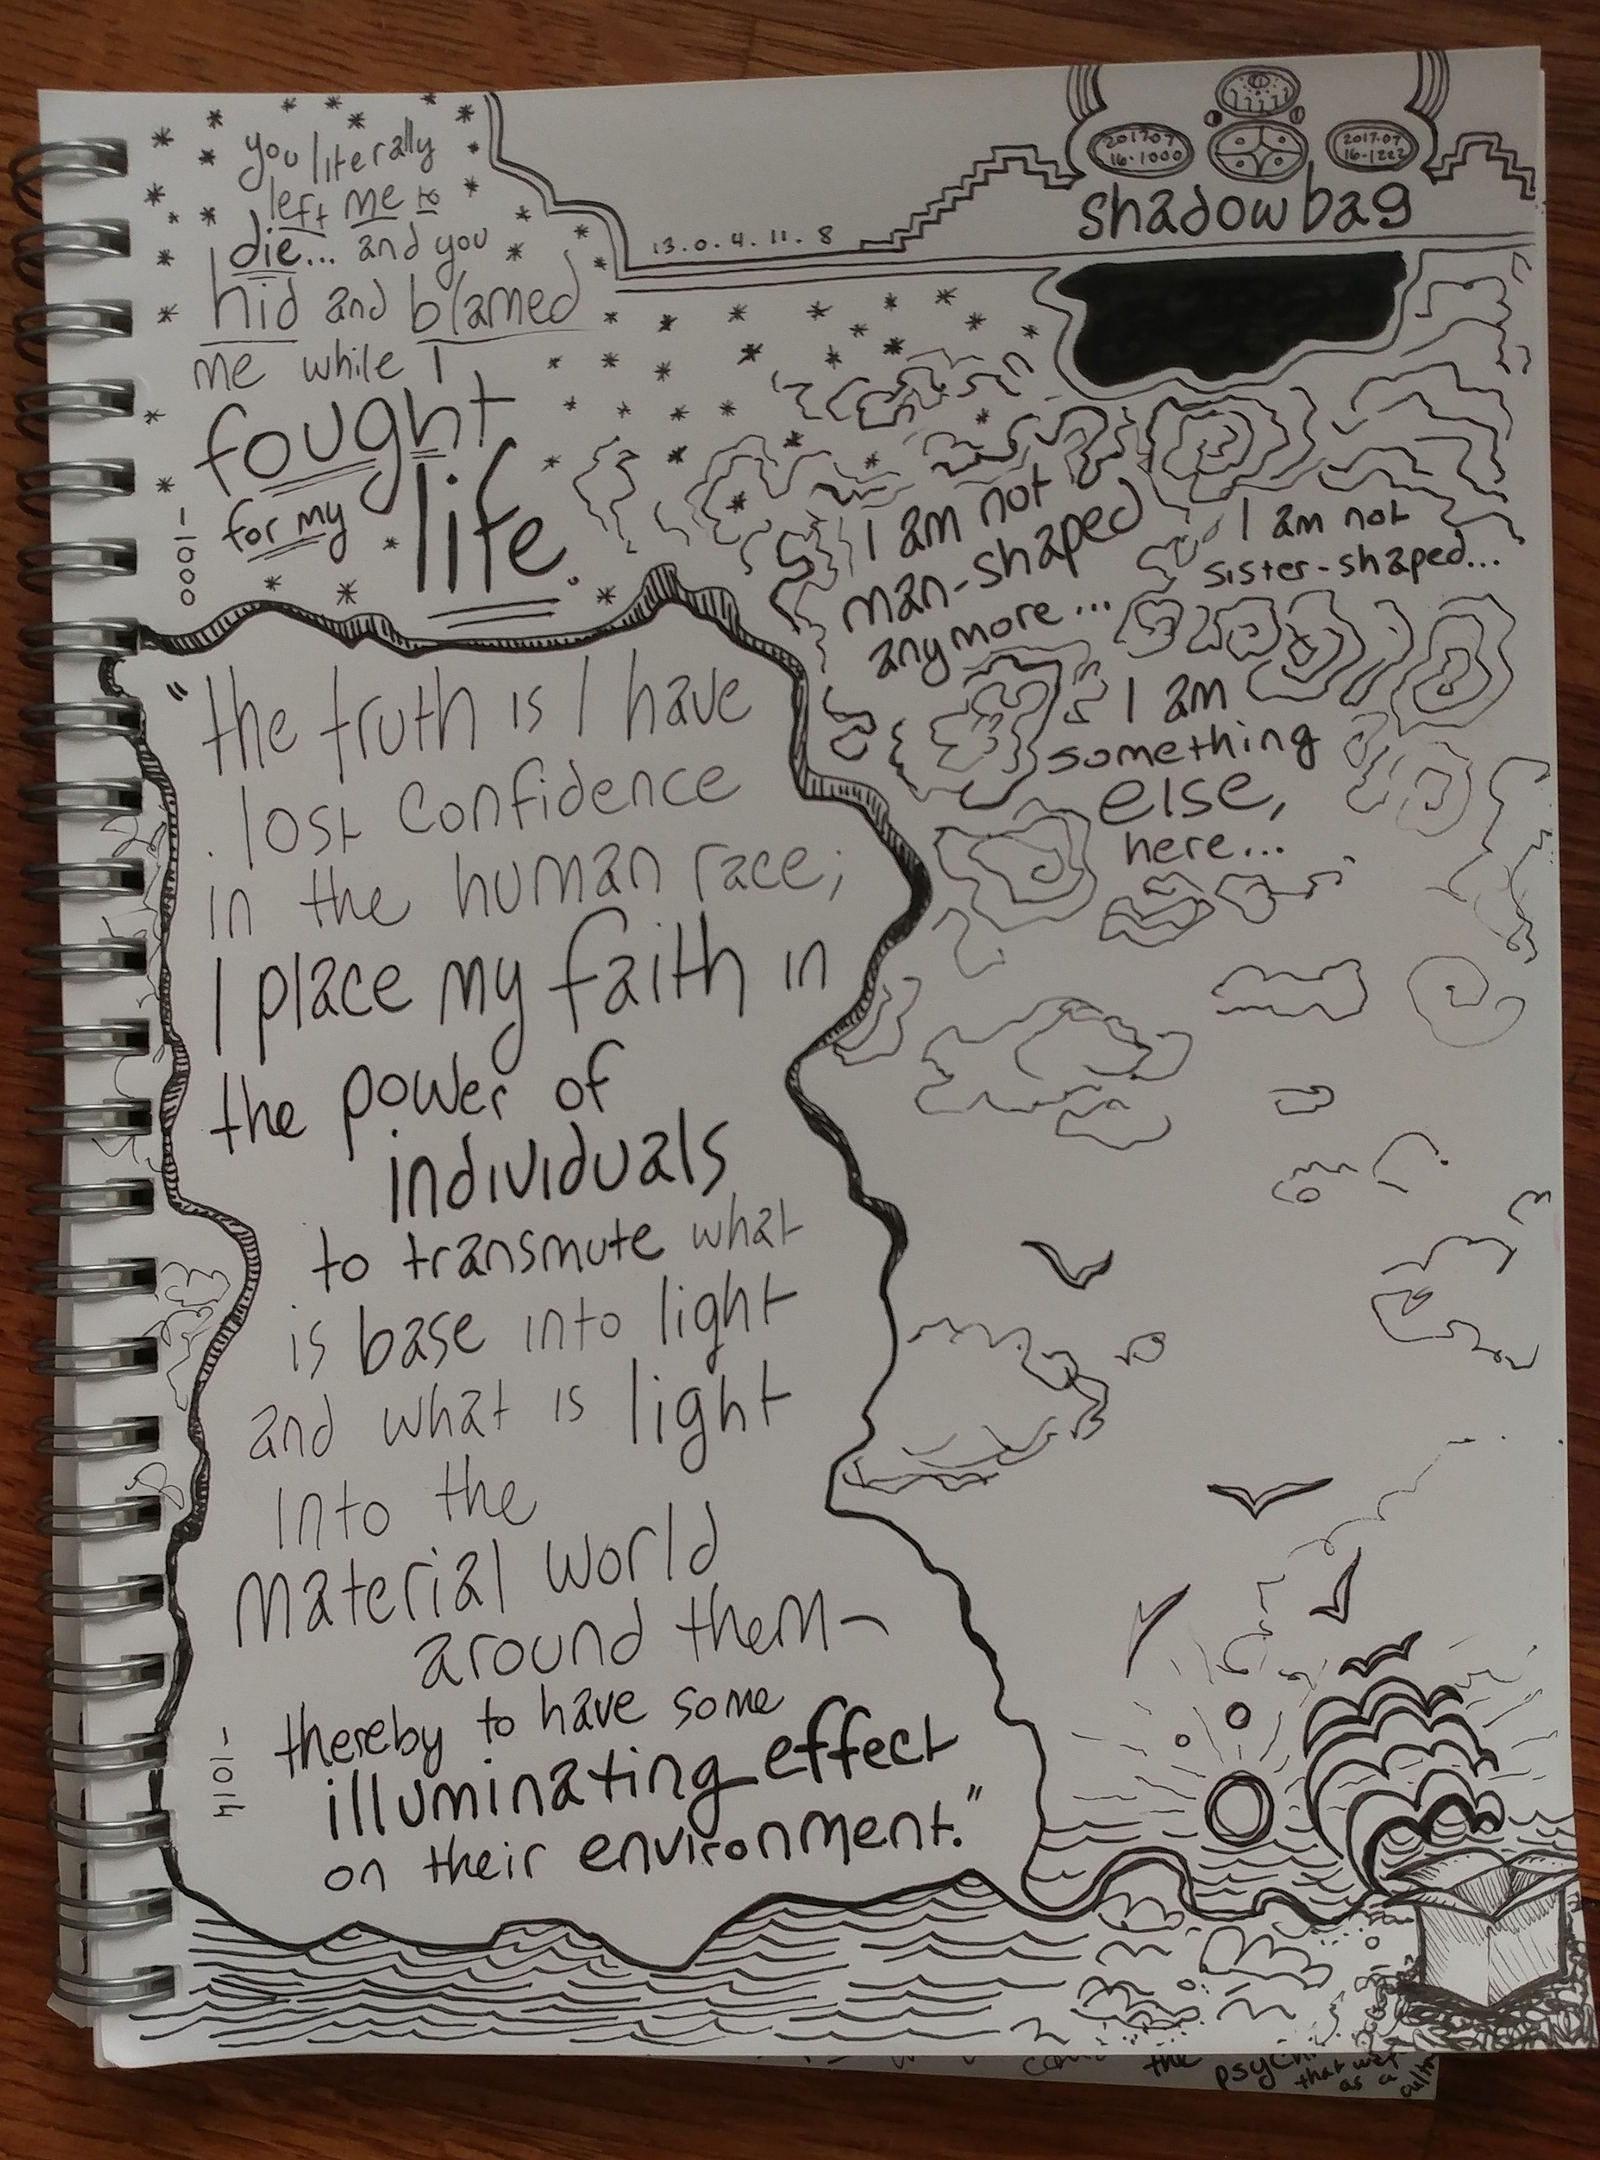 you literally
left me to
die... and you
hid and blamed
me while I
fought
for my
life.
-1000
13.0.4.11.8
2017.07
16.1000
2017.07
16.1222
shadowbag
I am not
man-shaped
anymore...
I am not
sister-shaped...
I am
something
else,
here...
"the truth is I have
lost confidence
in the human race;
I place my faith in
the power of
individuals
to transmute what
is base into light
and what is light
into the
material world
around them-
thereby to have some
illuminating effect
on their environment."
-1014
the
that
as a